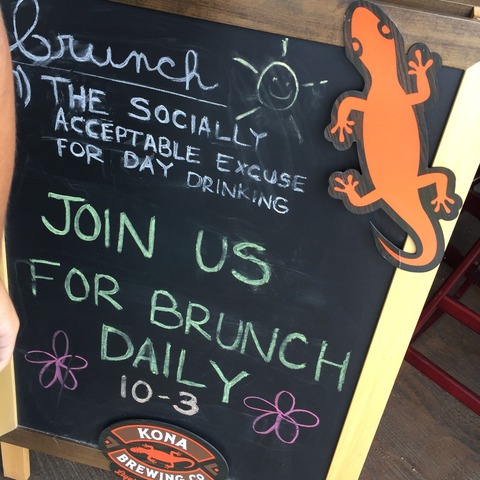 brunch
1) THE SOCIALLY
ACCEPTABLE EXCUSE
FOR DAY DRINKING
JOIN US
FOR BRUNCH
DAILY
10-3
KONA
BREWING CO